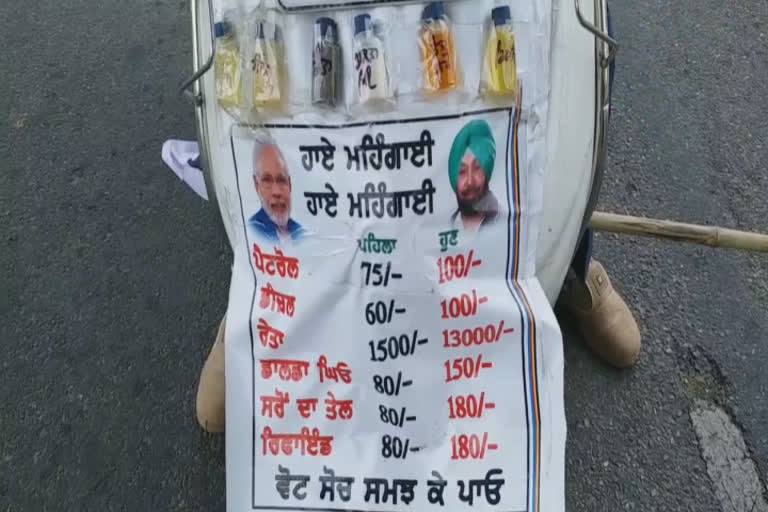 ਹਾਏ ਮਹਿੰਗਾਈ
ਹਾਏ ਮਹਿੰਗਾਈ
ਪਹਿਲਾ ਹੁਣ
ਪੈਟਰੋਲ 75/- 100/-
ਡੀਜ਼ਲ 60/- 100/-
ਰੇਤਾ 1500/- 13000/-
ਡਾਲਡਾ ਘਿਓ 80/- 150/-
ਸਰੋਂ ਦਾ ਤੇਲ 80/- 180/-
ਰਿਫਾਇੰਡ 80/- 180/-
ਵੋਟ ਸੋਚ ਸਮਝ ਕੇ ਪਾਓ